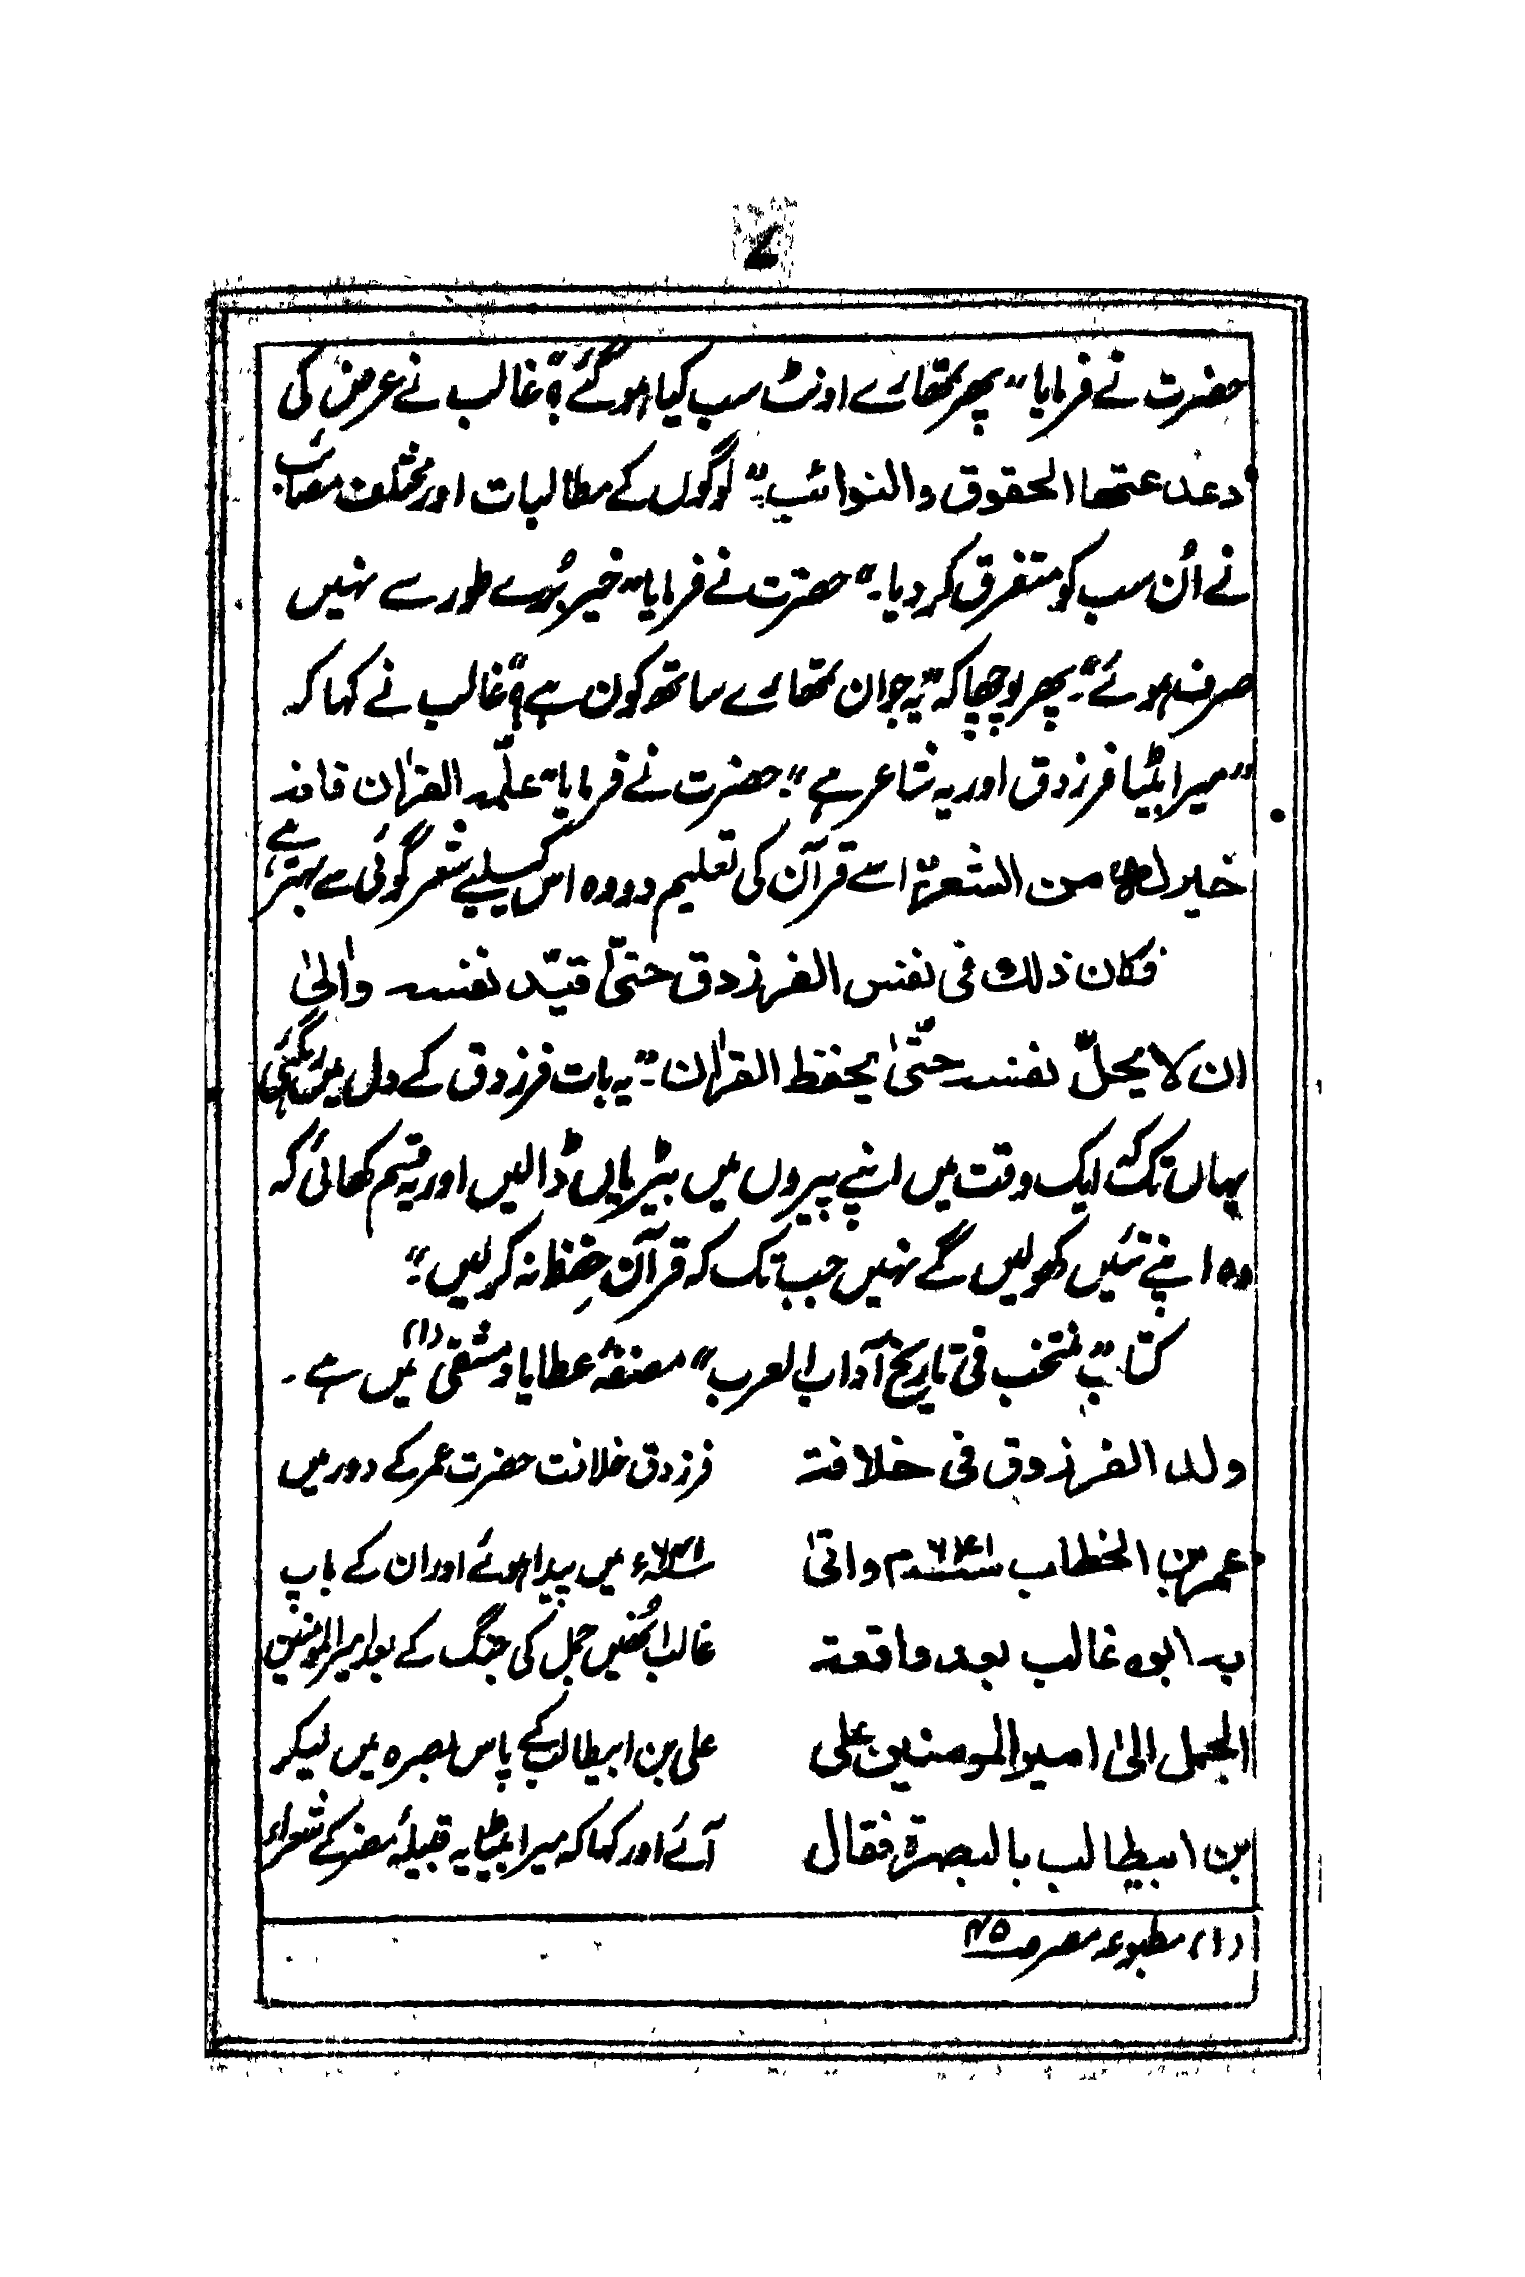 ۷
حضرت نے فرمایا "پھر تمھارے اونٹ سب کیا ہو گئے؟" غالب نے عرض کی
دعدعتھا الحقوق والنوائب۔" لوگوں کے مطالبات اور مختلف مصائب
نے اُن سب کو متفرق کر دیا۔" حضرت نے فرمایا "خیر بُرے طور سے نہیں
صرف ہوئے۔" پھر پوچھا کہ "یہ جوان تمھارے ساتھ کون ہے؟" غالب نے کہا کہ
"میرا بیٹا فرزدق اور یہ شاعر ہے"۔ حضرت نے فرمایا "علّمہ القرٰان فانہ
خیرلہ من الشعر" اسے قرآن کی تعلیم دو وہ اس کیلیے شعر گوئی سے بہتر ہے
فکان ذلک فی نفس الفرزدق حتیّٰ قیّد نفسہ واٰلیٰ
ان لا یحلّ نفسہ حتّیٰ یحفظ القرٰان۔" یہ بات فرزدق کے دل میں رہگئی
یہاں تک کہ ایک وقت میں اپنے پیروں میں بیڑیاں ڈالیں اور یہ قسم کھائی کہ
وہ اپنے تئیں کھولیں گے نہیں جب تک کہ قرآن حِفظ نہ کر لیں۔"
کتاب "منتخب فی تاریخ آداب العرب" مصنفۂ عطایا دمشقی (۱) میں ہے۔
ولد الفرزدق فی خلافة
فرزدق خلافت حضرت عمر کے دور میں
عمر بن الخطاب سنہ ۶۴۱م واتیٰ
سنہ ۶۴۱ء میں پیدا ہوئے اور ان کے باپ
بہ ابوہ غالب بعد واقعة
غالب اُنھیں جمل کی جنگ کے بعد امیر المومنین
الجمل الیٰ امیر المومنین علی
علی بن ابیطالب کے پاس بصرہ میں لیکر
بن ابیطالب بالبصرة فقال
آئے اور کہا کہ میرا بیٹا یہ قبیلۂ مضر کے شعراء
(۱) مطبوعہ مصر صـ ۴۵